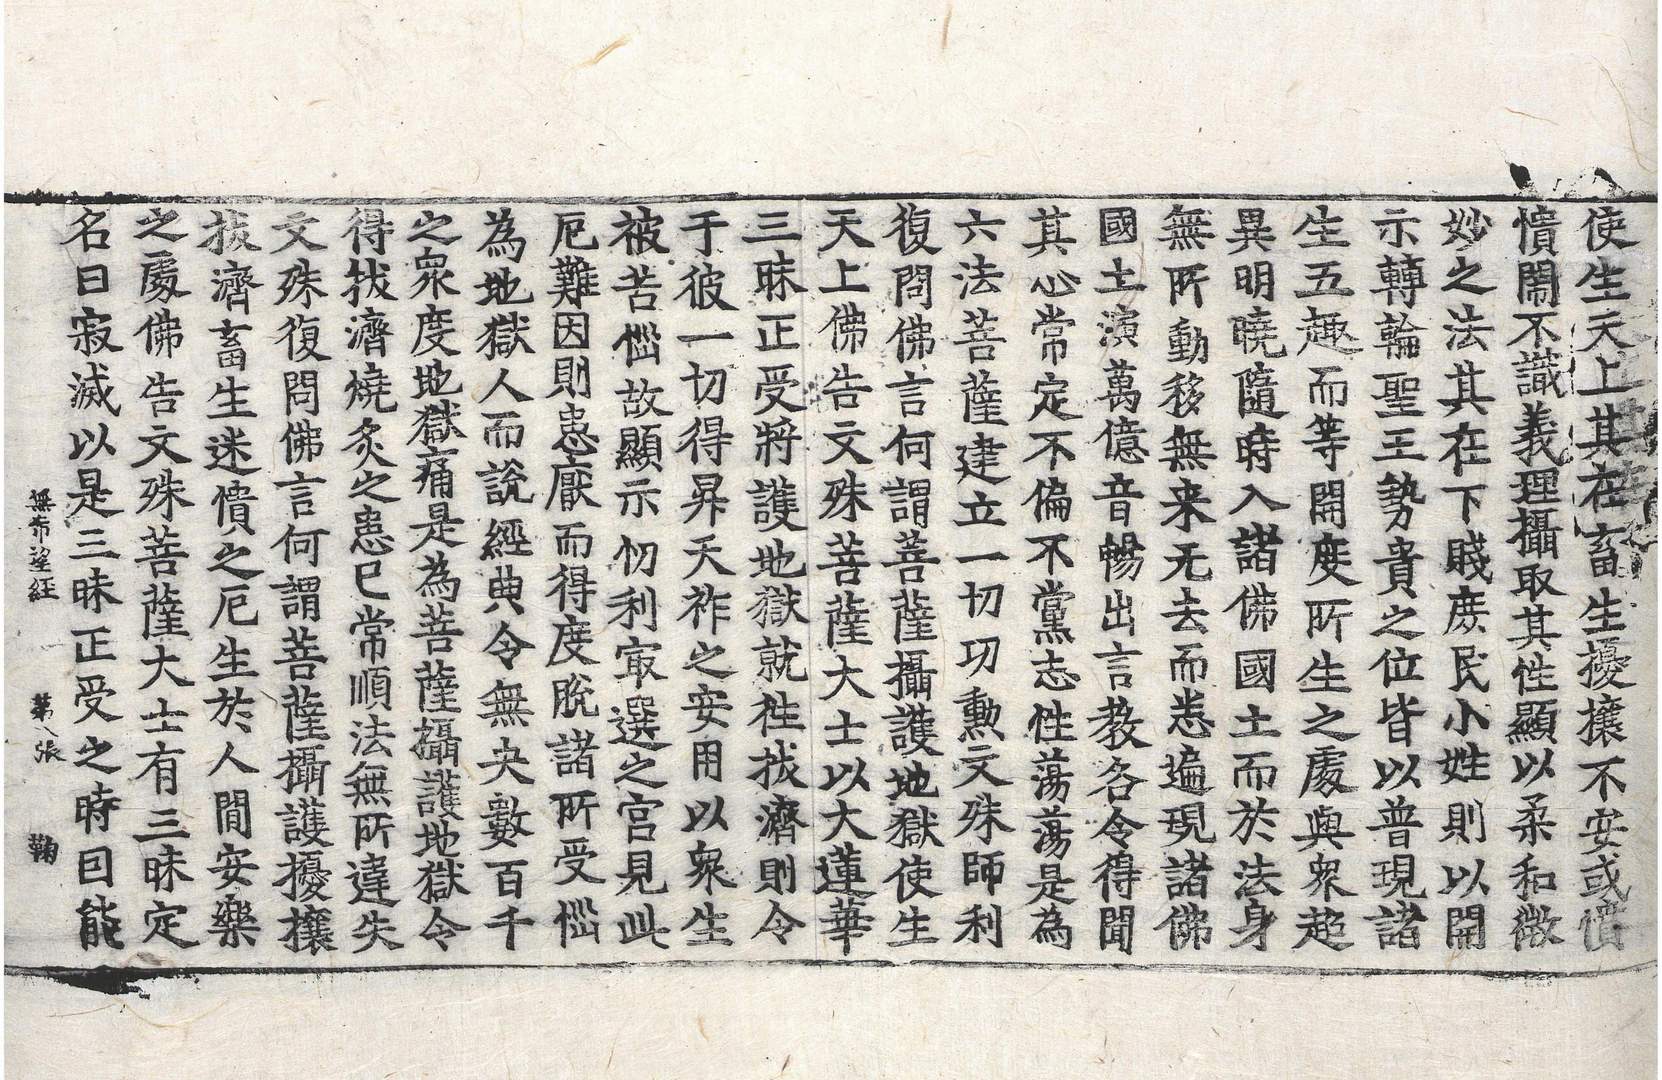 使生天上其在畜生擾攘不安或憒
憒閙不識義理攝取其性顯以柔和微
妙之法其在下賤庶民小姓則以開
示轉輪聖王勢貴之位皆以普現諸
生五趣而等開度所生之處與衆超
異明曉隨時入諸佛國土而於法身
無所動移無来无去而悉遍現諸佛
國土演萬億音暢出言教各令得聞
其心常定不偏不黨志性蕩蕩是為
六法菩薩建立一切功勳文殊師利
復問佛言何謂菩薩攝護地獄使生
天上佛告文殊菩薩大士以大蓮華
三昧正受將護地獄就往拔濟則令
于彼一切得昇天祚之安用以衆生
被苦惱故顯示忉利㝡選之宫見此
厄難因則患厭而得度脫諸所受惱
為地獄人而說經典令無央數百千
之衆度地獄痛是為菩薩攝護地獄令
得拔濟燒炙之患已常順法無所違失
文殊復問佛言何謂菩薩攝護擾攘
拔濟畜生迷憒之厄生於人間安樂
之處佛告文殊菩薩大士有三昧定
名曰寂滅以是三昧正受之時因能
無希望経 第八張 鞠